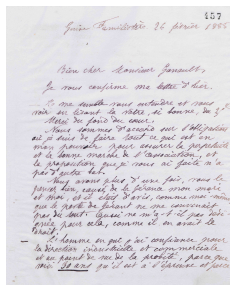 457
Guise Familistère 26 février 1888
Bien cher Monsieur
Je vous confirme ma lettre d'hier.
Il me semble vous entendre et vous
voir en lisant la vôtre, si bonne, du
Merci du fond du cœur.
Nous sommes d'accord sur l'obligation
où je suis de faire tout ce qui est en
mon pouvoir pour assurer la perpétuité
et la bonne marche de l'association, et
la proposition que je vous ai faite n'a
pas d'autre but.
Nous avons plus d'une fois, vous le
pensez bien, causé de la gérance mon mari
et moi, et il était d'avis, comme moi-même
que le poste de gérant ne me convenait
pas du tout. Aussi ne m'a-t-il pas dési
gnée pour cela, comme il en avait le
droit.
L'homme en qui j'ai confiance pour
la direction industrielle et commerciale
et au point de vue de la probité, parce que
ans qu'il est à l'épreuve et parce